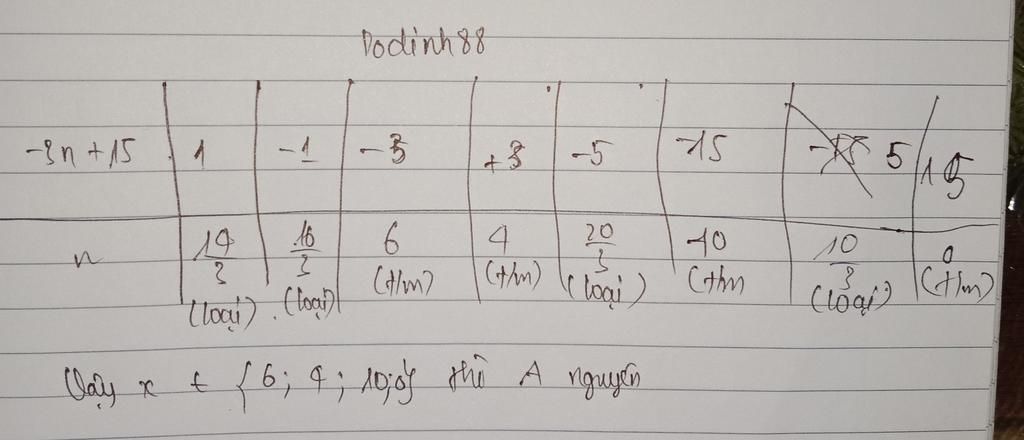 Dodinh88
-3n+15 1 -1 -3 +3 -5 -15 5 15
n 14/3 (loại) 16/3 (loại) 6 (t/m) 4 (t/m) 20/3 (loại) 10 (t/m 10/3 (loại) 0 (t/m)
Vậy x ∈ {6; 4; 10; 0} thì A nguyên